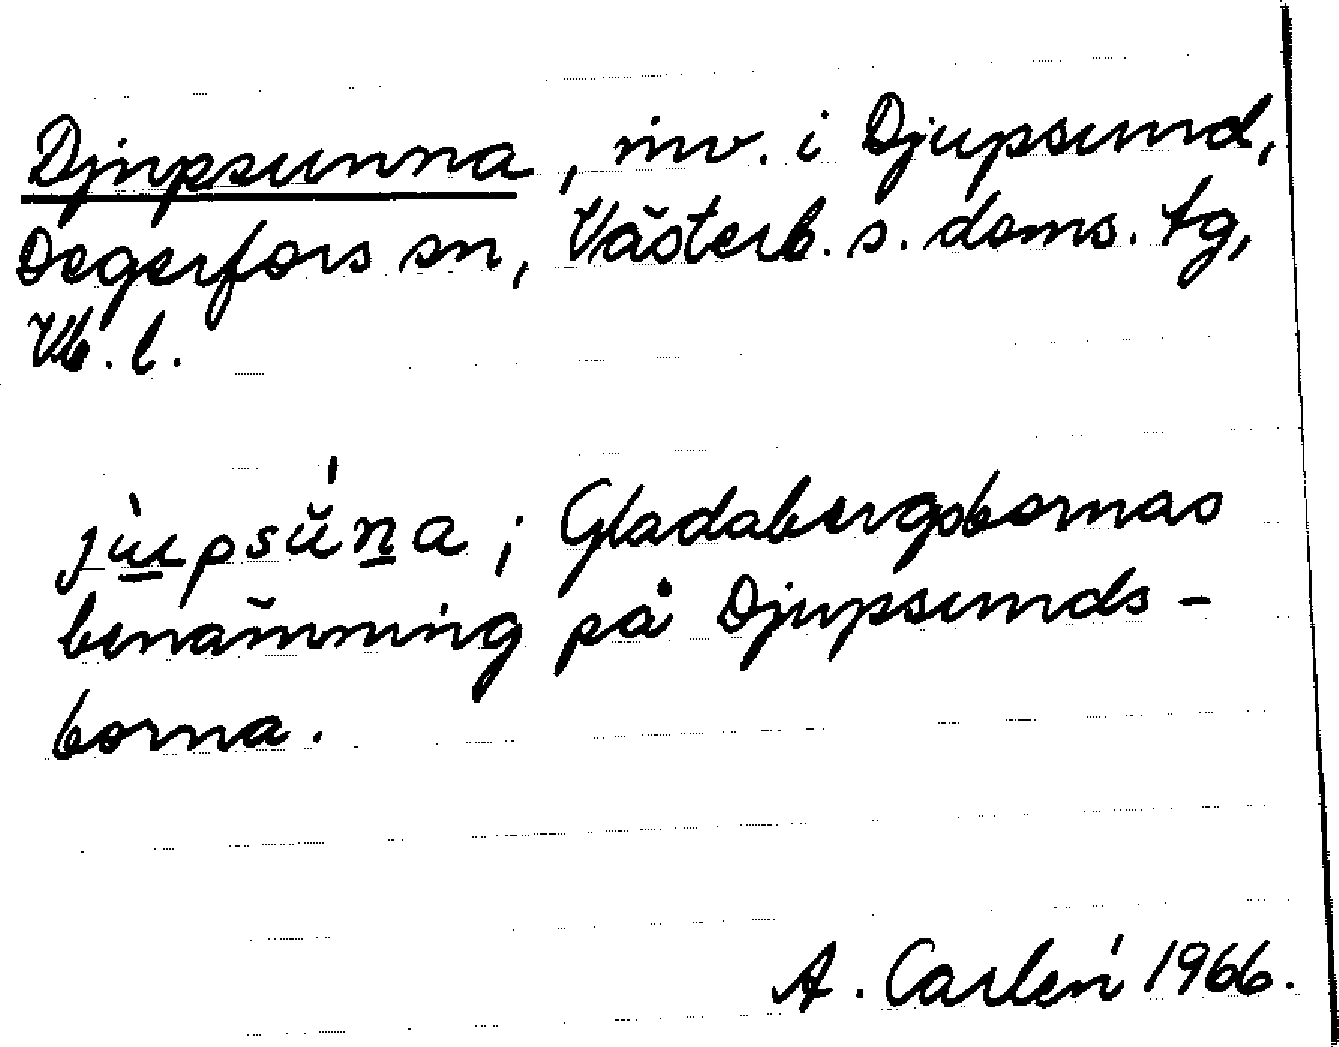 Djupsunna, inv. i Djupsund,
Degerfors sn, Västerb. s. doms. tg,
Vb. l.
jùpsǔ́na; Gladabergsbornas
benämning på Djupsunds-
borna.
A. Carlén 1966.